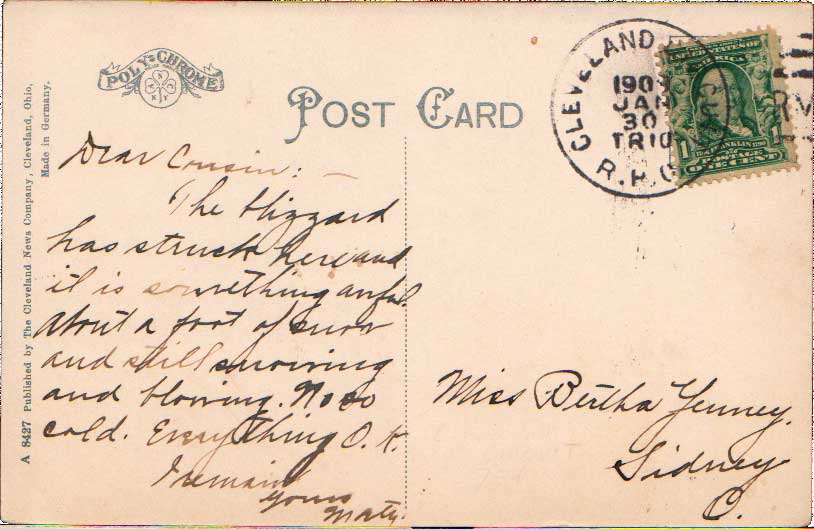 POLY-CHROME
POST CARD
CLEVELAND
190
JAN
30
TR10
R.P.O
RM
UNITED STATES OF
AMERICA
1 FRANKLIN 1790 1
POSTAGE
ONE CENT
A 8427 Published by The Cleveland News Company, Cleveland, Ohio,
Made in Germany.
Dear Cousin:
The blizzard
has struck here and
it is something awful.
About a foot of snow
and still snowing
and blowing. Not so
cold. Everything O.K.
I remain
yours
Maty.
Miss Bertha Yenney.
Sidney
O.